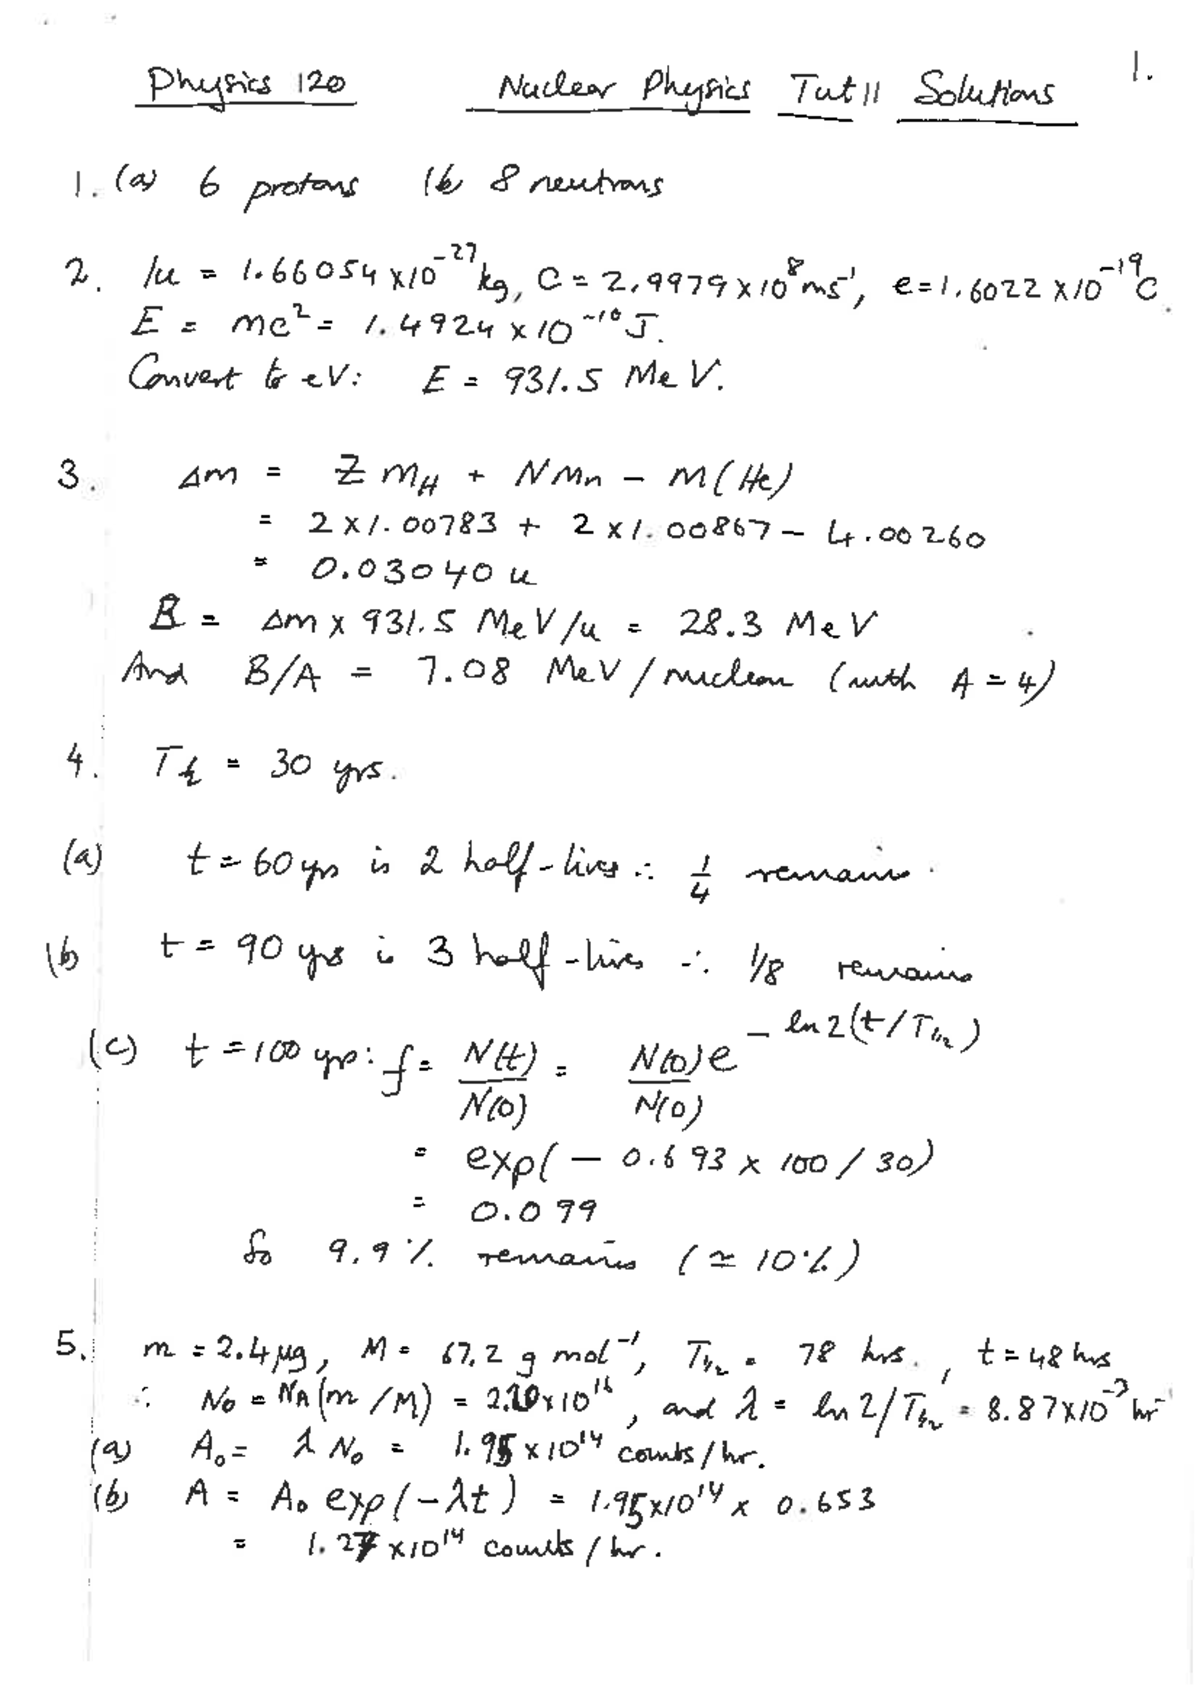 1.
Physics 120 Nuclear Physics Tut 11 Solutions
1. (a) 6 protons (b) 8 neutrons
2. 1u = 1.66054 x10^-27 kg, C = 2.9979 x 10^8 ms^-1, e = 1.6022 x10^-19 C.
E = mc^2 = 1.4924 x 10^-10 J.
Convert to eV: E = 931.5 MeV.
3. Δm = Z m_H + N m_n - M(He)
= 2 x 1.00783 + 2 x 1.00867 - 4.00260
= 0.03040 u
B = Δm x 931.5 MeV/u = 28.3 MeV
And B/A = 7.08 MeV/nucleon (with A = 4)
4. T½ = 30 yrs.
(a) t = 60 yrs is 2 half-lives ∴ 1/4 remains.
(b) t = 90 yrs is 3 half-lives ∴ 1/8 remains
(c) t = 100 yrs: f = N(t)/N(0) = N(0)e^-ln2(t/T½)/N(0)
= exp(- 0.693 x 100 / 30)
= 0.099
So 9.9% remains (≃ 10%)
5. m = 2.4 μg, M = 67.2 g mol^-1, T½ = 78 hrs., t = 48 hrs
∴ N_0 = N_A (m/M) = 2.20x10^16, and λ = ln 2/T½ = 8.87x10^-3 hr^-1
(a) A_0 = λ N_0 = 1.95 x 10^14 counts/hr.
(b) A = A_0 exp(-λt) = 1.95x10^14 x 0.653
= 1.27 x10^14 counts/hr.